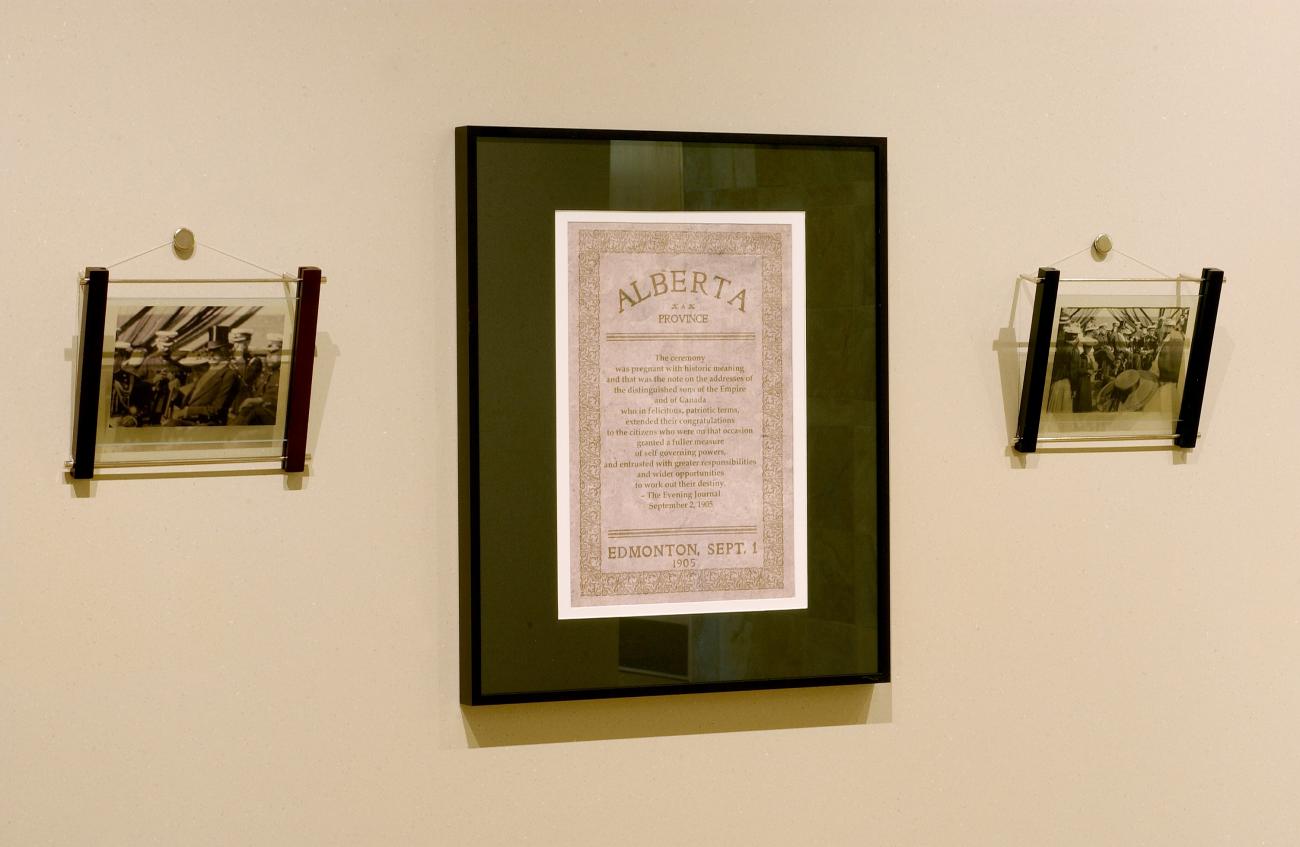 ALBERTA
A
PROVINCE
The ceremony
was pregnant with historic meaning
and that was the note on the addresses of
the distinguished sons of the Empire
and of Canada
who in felicitous, patriotic terms,
extended their congratulations
to the citizens who were on that occasion
granted a fuller measure
of self governing powers,
and entrusted with greater responsibilities
and wider opportunities
to work out their destiny.
– The Evening Journal
September 2, 1905
EDMONTON, SEPT. 1
1905